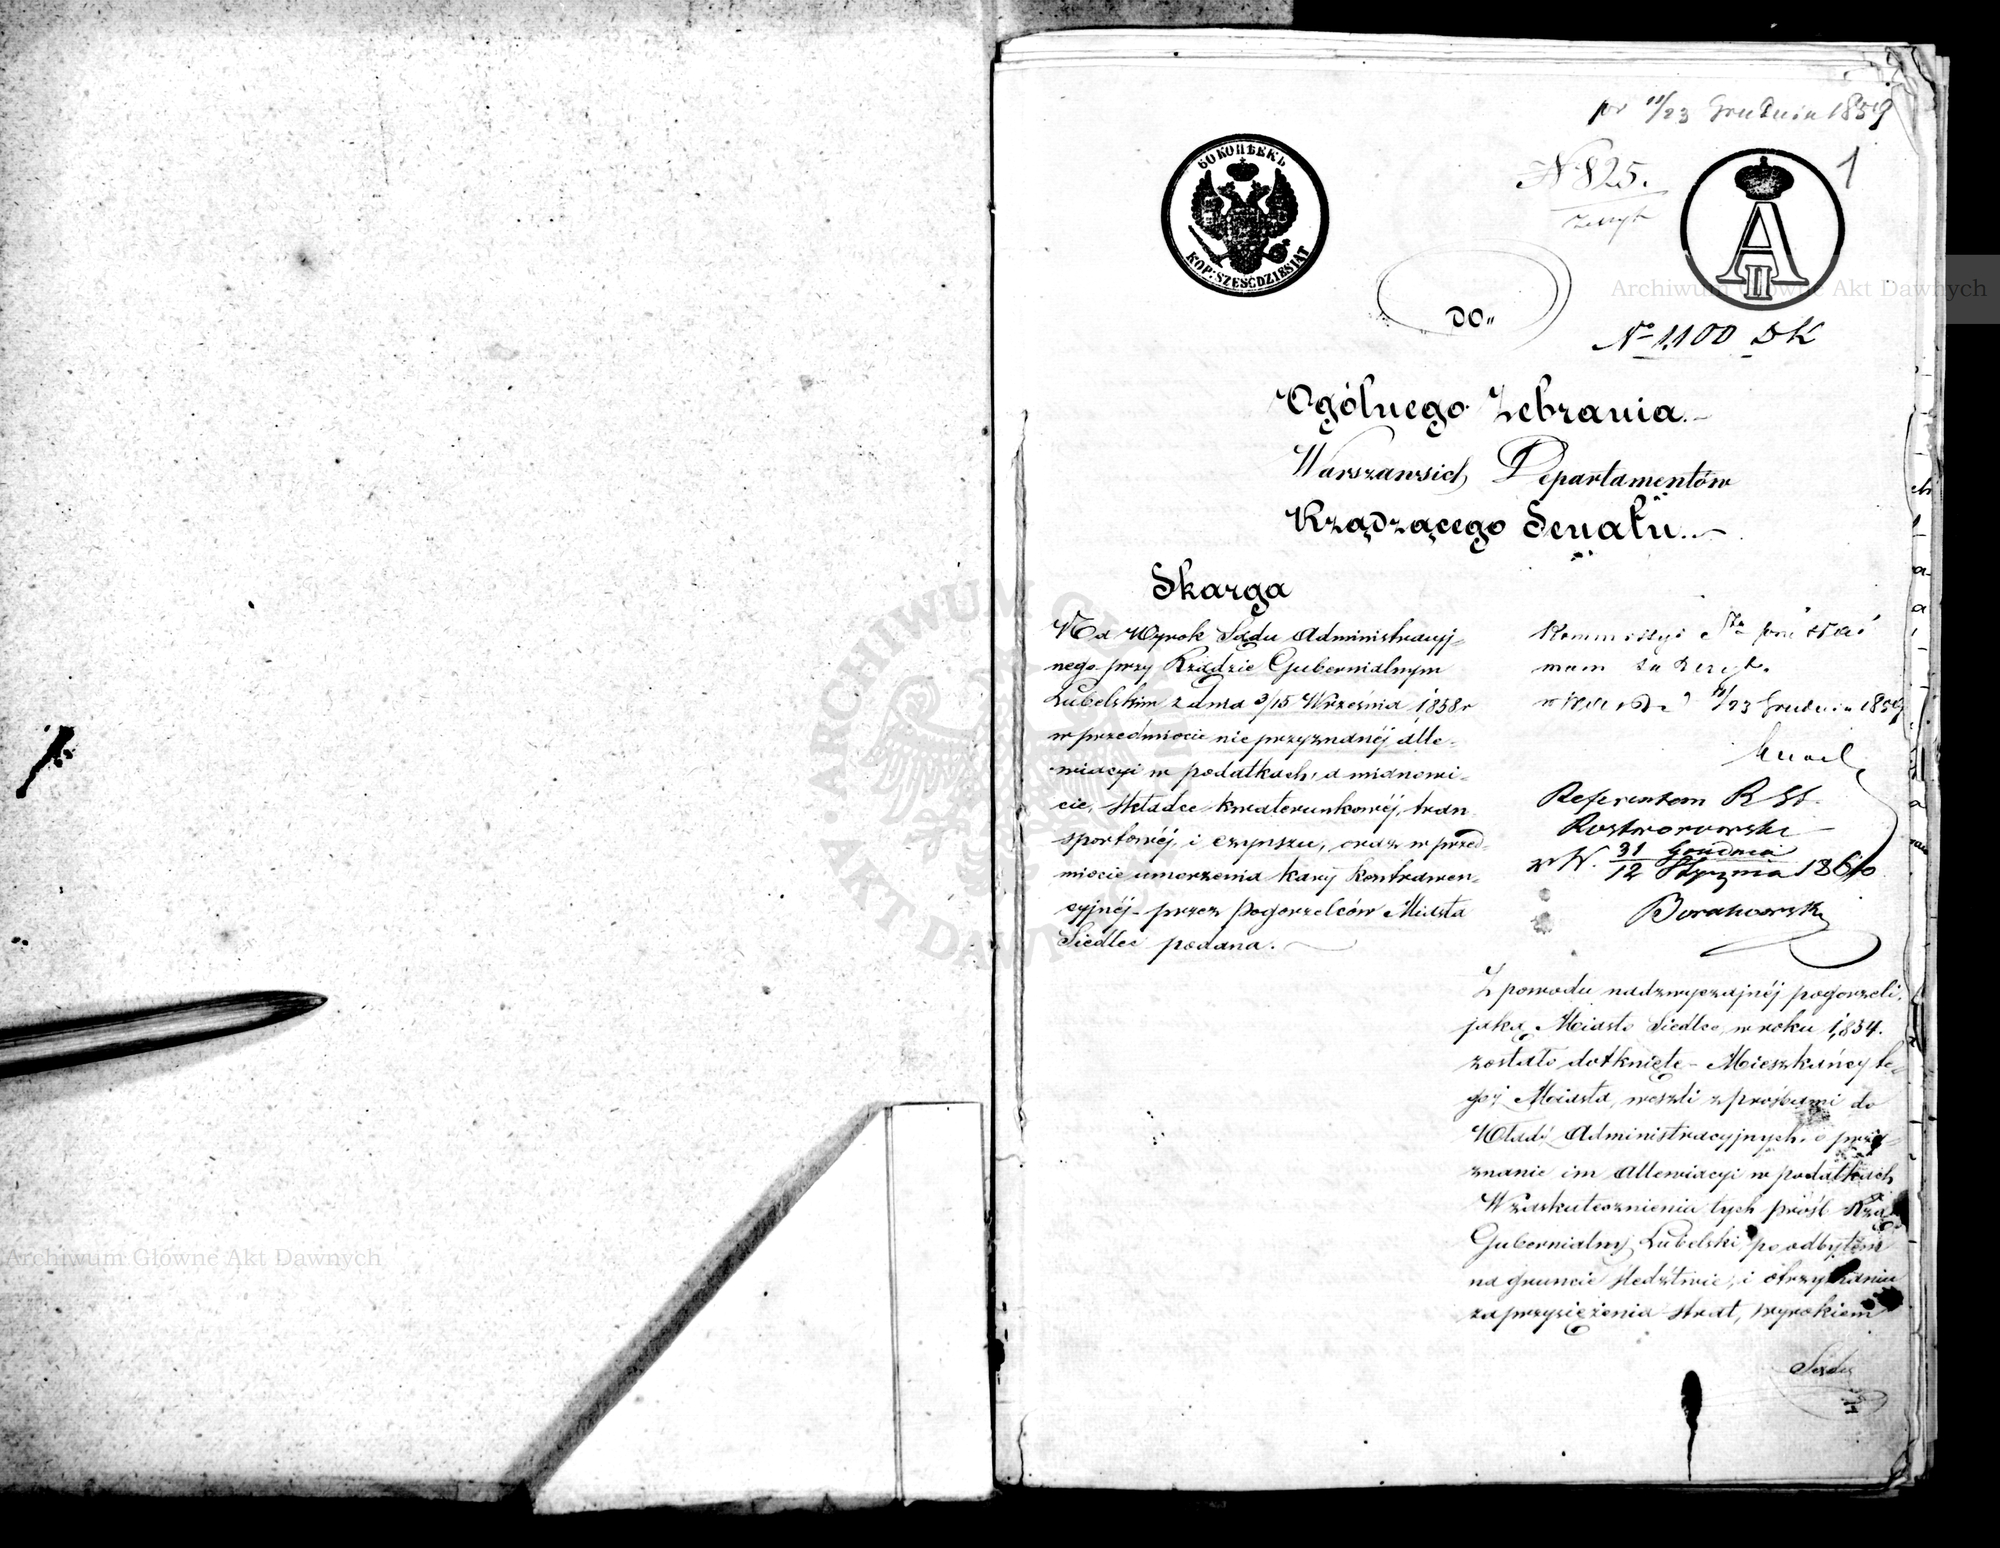 pr 11/23 Grudnia 1859
1
N 825.
60 КОПѢЕКЪ
KOP: SZEŚĆDZIESIĄT
A II
DO"
No 1,100 DK
Ogólnego Zebrania
Warszawsich Departamentów
Rządzącego Senatu.
Skarga
Na Wyrok Sądu Administracyj=
nego przy Rządzie Gubernialnym
Lubelskim z dnia 3/15 Września 1858 r
w przedmiocie nieprzyznanéj alle-
wiacyi w podatkach, a mianowi-
cie, składce kwaterunkowéj, tran
sportowéj, i czynszu, oraz w przed-
miocie umorzenia kary kontrawen-
cyjnéj – przez Pogorzelców Miasta
Siedlec podana.
11/23 Grudnia 1859
Referentem R St.
Rostworowski
w W. 31 Grudnia / 12 Stycznia 1860
Z powodu nadzwyczajnéj pogorzeli,
jaką Miasto Siedlce, w roku 1,854.
zostało dotknięte – Mieszkańcy te-
goż Miasta, weszli z prośbami do
Władz Administracyjnych, o przy-
znanie im allewiacyi w podatkach
W zaskutecznieniu tych próśb Rząd
Gubernialny Lubelski po odbytem
na gruncie śledztwie, i otrzymaniu
zaprzysiężenia strat, wyrokiem
Sądu
Archiwum Główne Akt Dawnych
Archiwum Główne Akt Dawnych
ARCHIWUM GŁÓWNE AKT DAWNYCH